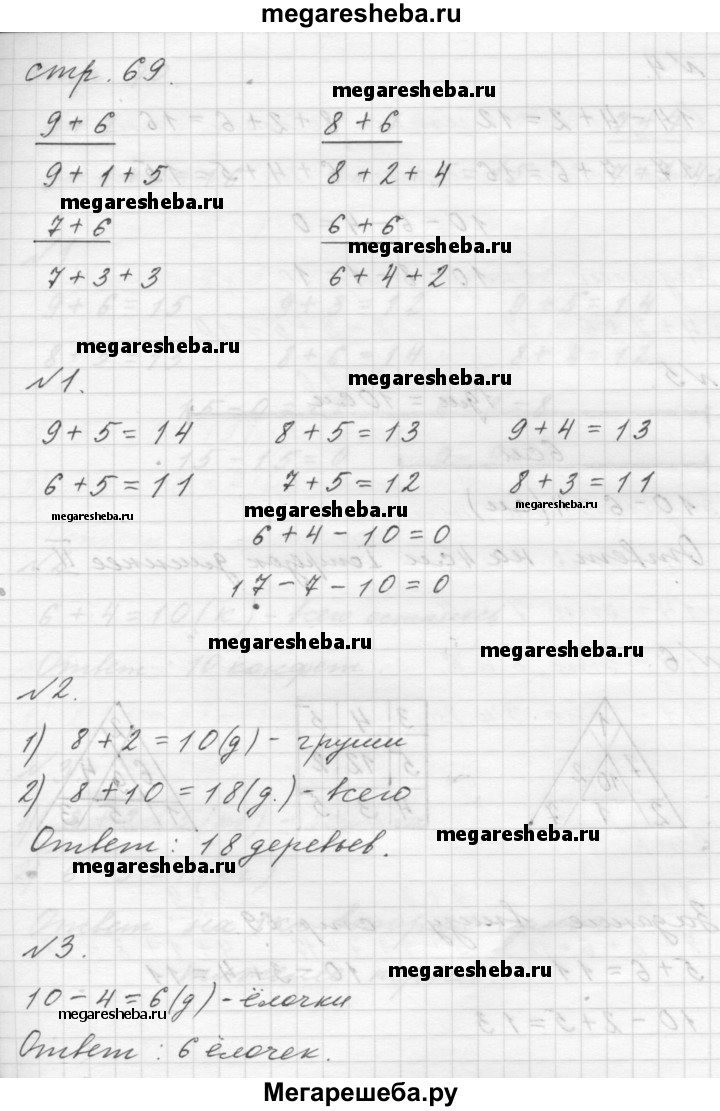 megaresheba.ru
стр. 69.
megaresheba.ru
9 + 6 8 + 6
9 + 1 + 5 8 + 2 + 4
megaresheba.ru
7 + 6 6 + 6
megaresheba.ru
7 + 3 + 3 6 + 4 + 2
megaresheba.ru
№1. megaresheba.ru
9 + 5 = 14 8 + 5 = 13 9 + 4 = 13
6 + 5 = 11 7 + 5 = 12 8 + 3 = 11
megaresheba.ru megaresheba.ru megaresheba.ru
6 + 4 - 10 = 0
17 - 7 - 10 = 0
megaresheba.ru megaresheba.ru
№2.
1) 8 + 2 = 10(д) - груши
2) 8 + 10 = 18(д.) - всего
Ответ : 18 деревьев.
megaresheba.ru megaresheba.ru
№3.
megaresheba.ru
10 - 4 = 6(д) - ёлочки
megaresheba.ru
Ответ : 6 ёлочек.
megaresheba.ru
Мегарешеба.ру